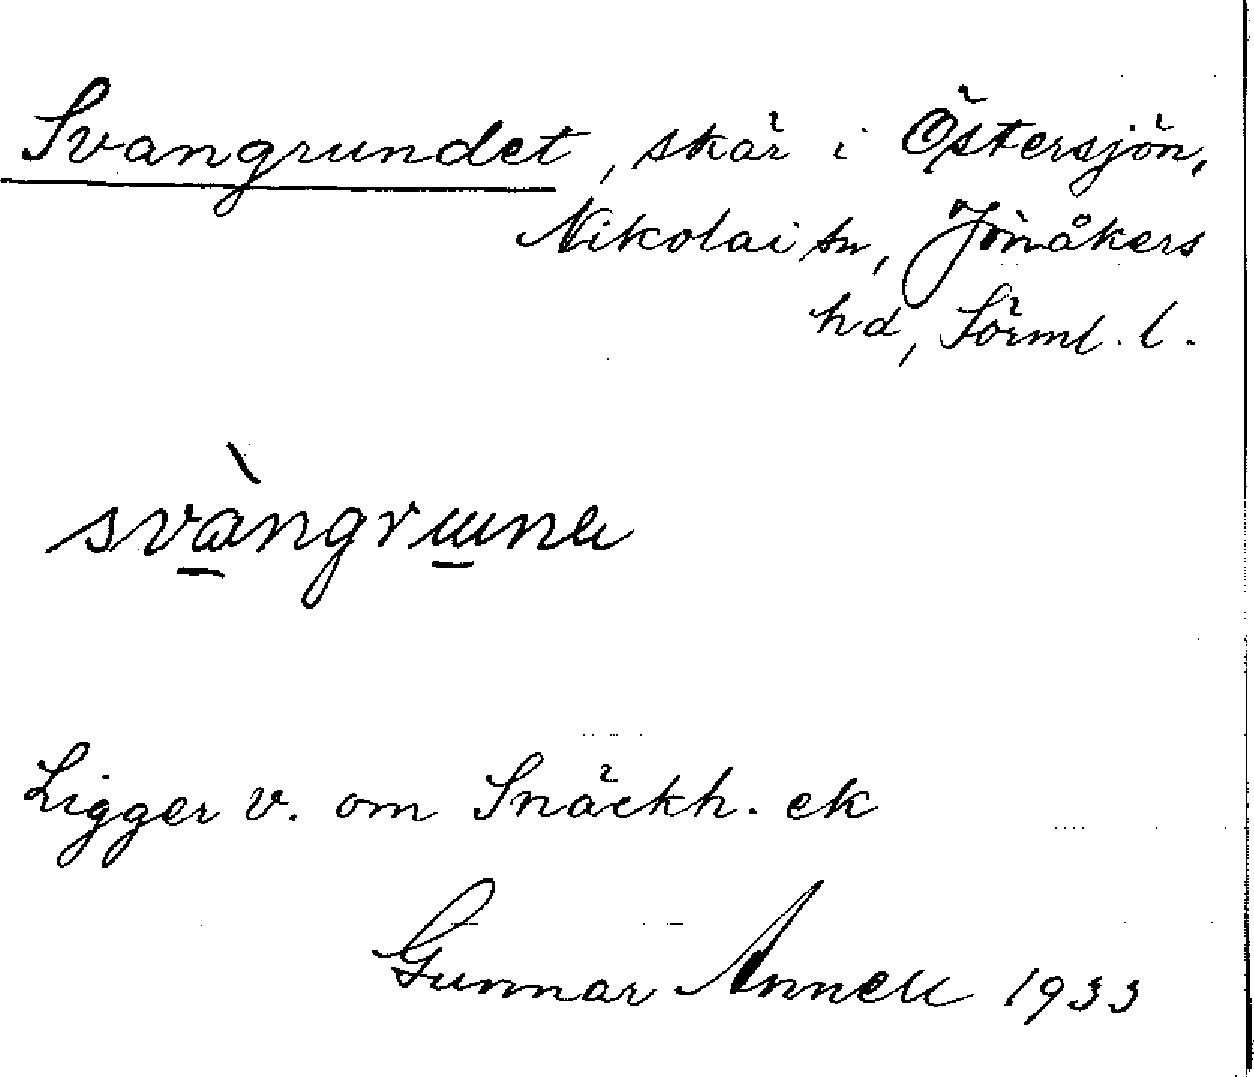 Svangrundet, skär i Östersjön,
Nikolai sn, Jönåkers
hd, Sörml. l.
svàngrunn
Ligger v. om Snäckh. ek
Gunnar Annell 1933